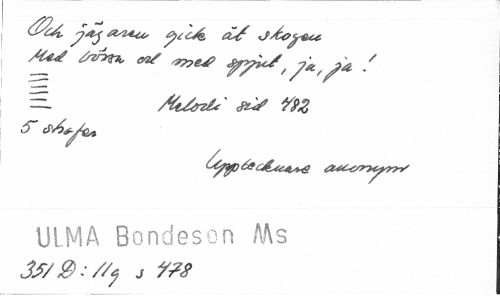 Och jägaren gick åt skogen
Med bössa och med spjut, ja, ja!
Melodi sid 482
5 strofer
Upptecknare anonym
ULMA Bondeson Ms
351 D:11g s 478